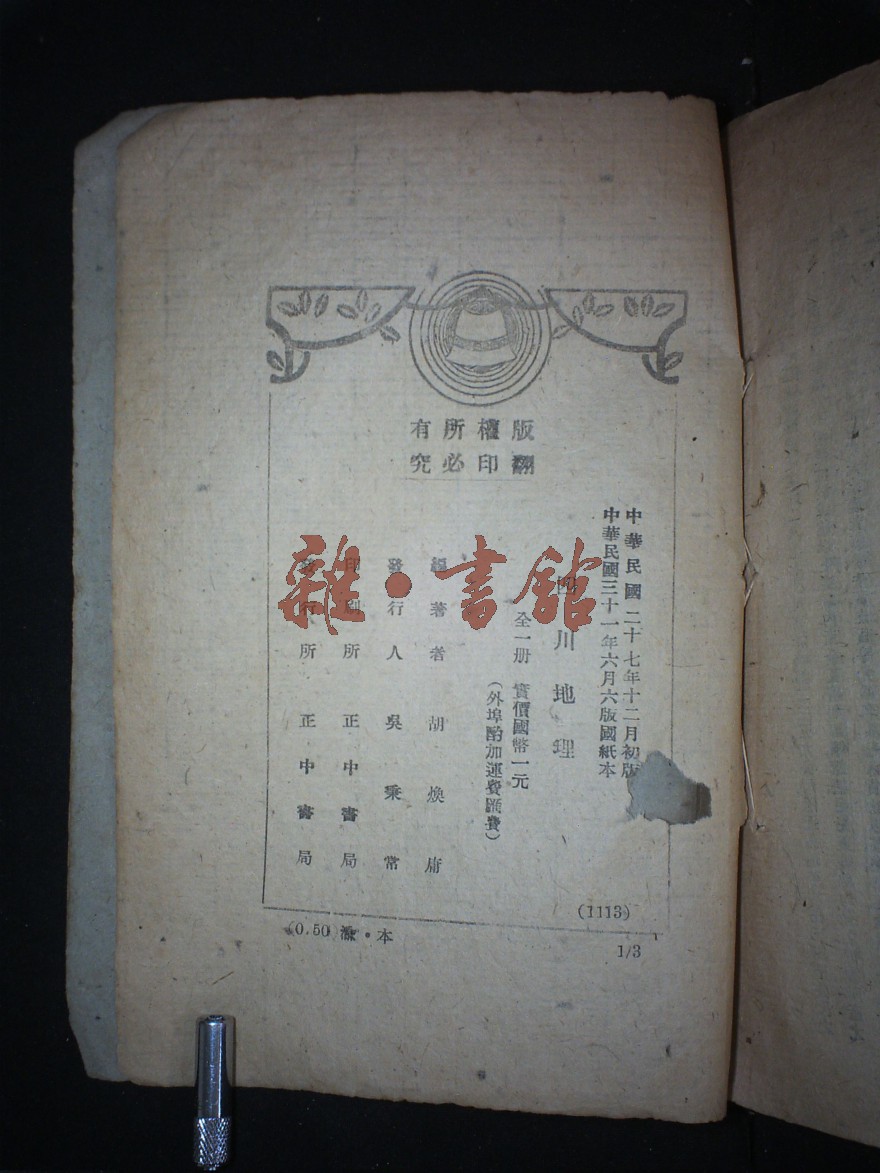 版權所有
翻印必究
中華民國二十七年十二月初版
中華民國三十一年六月六版國紙本
四川地理
全一册 實價國幣一元
(外埠酌加運費匯費)
編著者 胡煥庸
發行人 吳秉常
印刷所 正中書局
發行所 正中書局
(1113)
(0.50 本
1/3
雜·書館